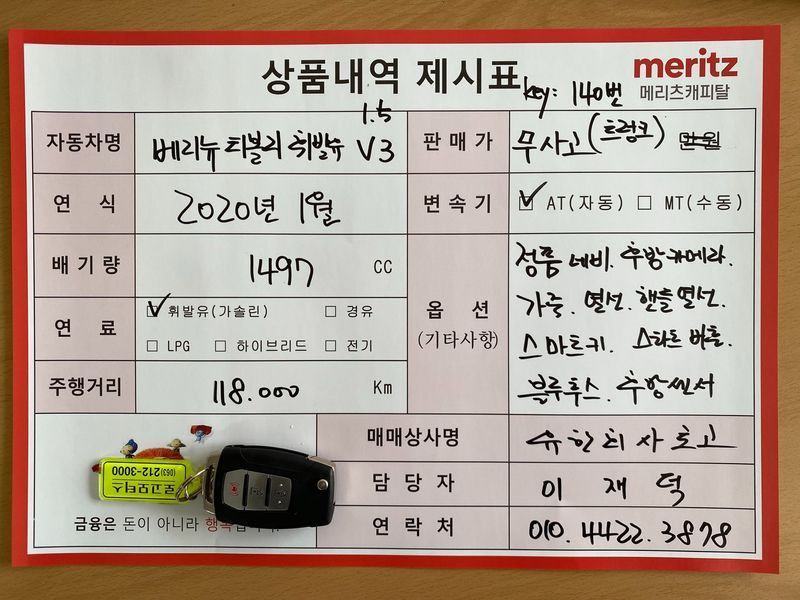 상품내역 제시표
meritz
메리츠캐피탈
key: 140번
자동차명 베리뉴 티볼리 휘발유 1.5 V3
판매가 무사고(트렁크) 만원
연 식 2020년 1월
변속기 ☑ AT(자동) □ MT(수동)
배기량 1497 CC
연 료 ☑ 휘발유(가솔린) □ 경유
□ LPG □ 하이브리드 □ 전기
주행거리 118.000 Km
옵 션
(기타사항)
정품 네비. 후방카메라.
가죽. 열선. 핸들열선.
스마트키. 스타트버튼.
블루투스. 후방센서
매매상사명
담 당 자 이 재 덕
연 락 처 010. 4422. 3878
로고모터스
(063)212-3000
금융은 돈이 아니라